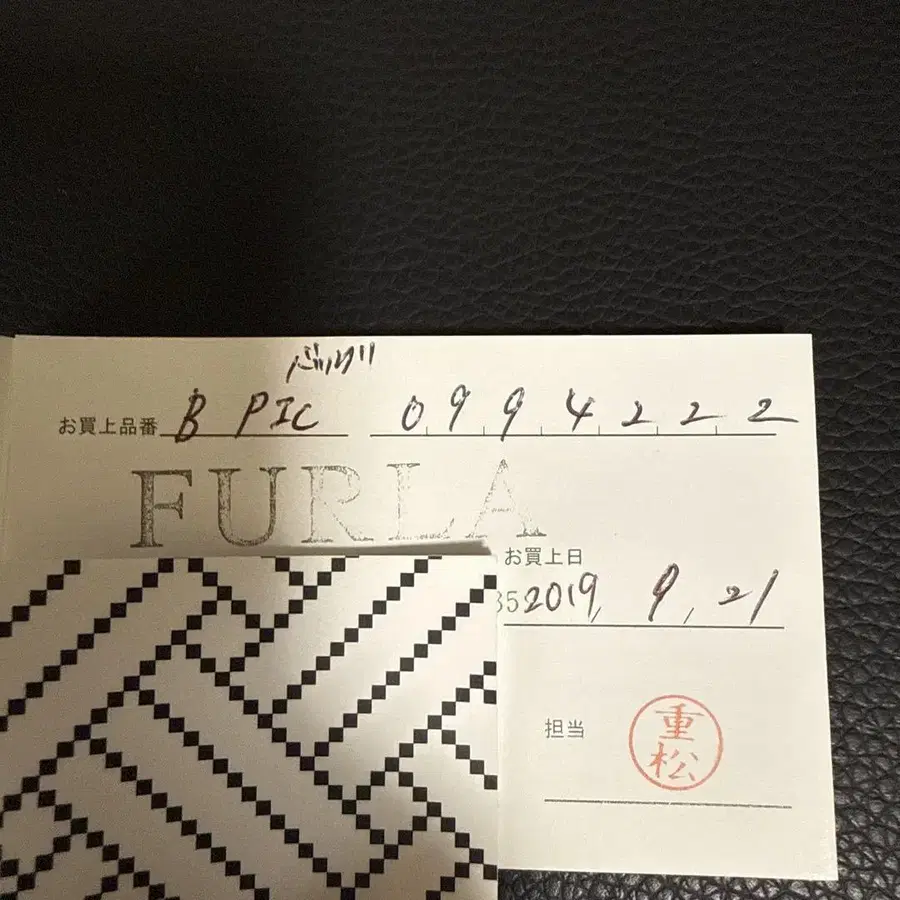 バッグ
お買上品番 B PIC 0994222
FURLA
お買上日
35 2019, 9, 21
担当 重松